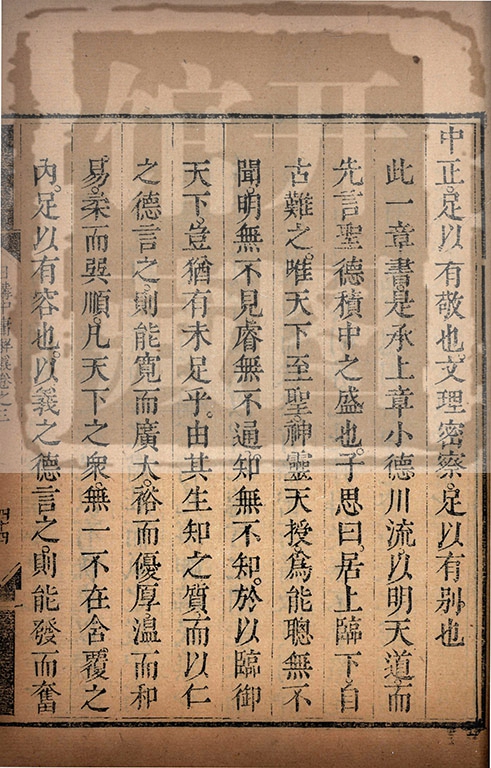 中正。足以有敬也。文理密察。足以有别也
此一章書。是承上章小德川流。以明天道。而
先言聖德積中之盛也。子思曰。居上臨下。自
古難之。唯天下至聖。神靈天授。爲能聰無不
聞。明無不見。睿無不通。知無不知。於以臨御
天下。豈猶有未足乎。由其生知之質。而以仁
之德言之。則能寬而廣大。裕而優厚。溫而和
易。柔而巽順。凡天下之衆。無一不在含覆之
內。足以有容也。以義之德言之。則能發而奮
日講中庸解義卷之三
四十四